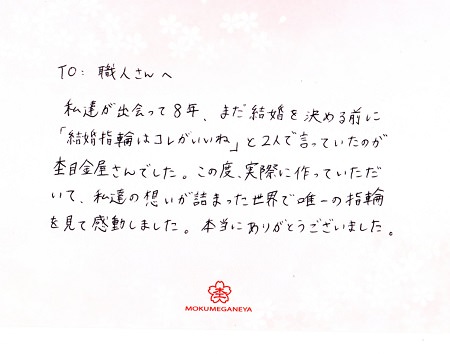 TO: 職人さんへ
私達が出会って8年、まだ結婚を決める前に
「結婚指輪はコレがいいね」と2人で言っていたのが
杢目金屋さんでした。この度、実際に作っていただ
いて、私達の想いが詰まった世界で唯一の指輪
を見て感動しました。本当にありがとうございました。
杢
MOKUMEGANEYA